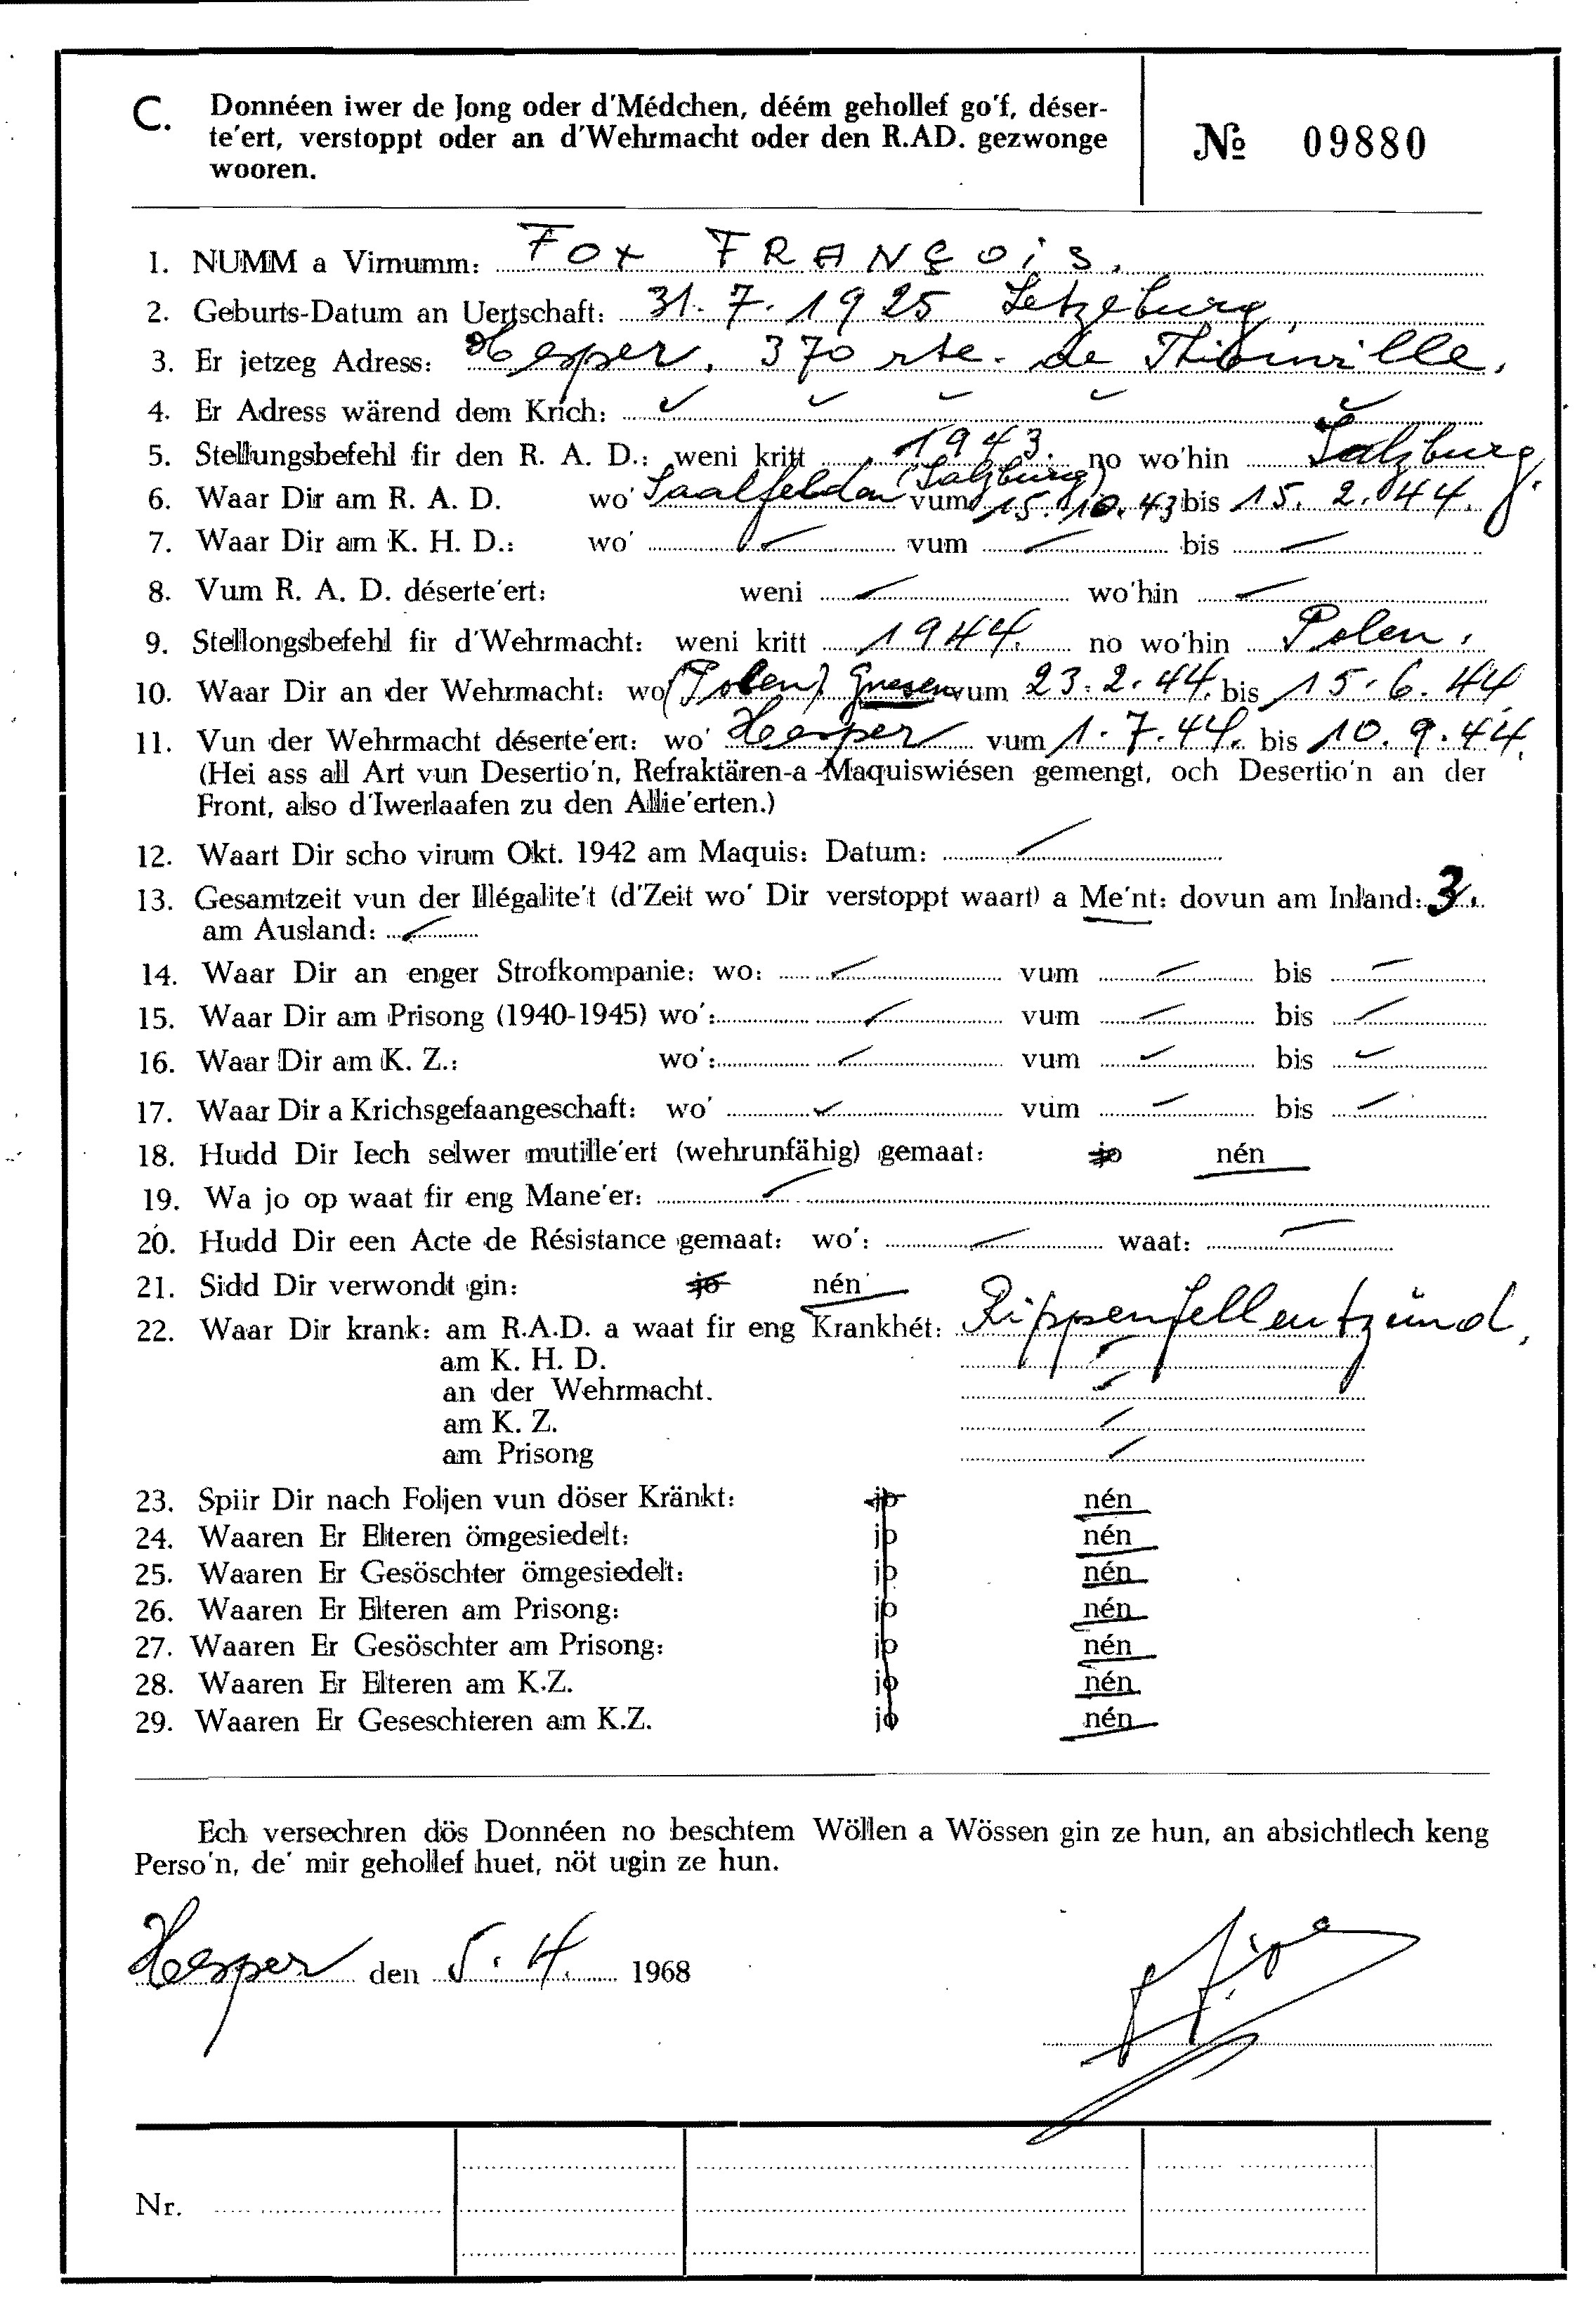 C. Donnéen iwer de Jong oder d'Médchen, déém gehollef go'f, déser-
te'ert, verstoppt oder an d'Wehrmacht oder den R.AD. gezwonge
wooren.
№ 09880
1. NUMM a Virnumm: Fox FRANÇOiS.
2. Geburts-Datum an Uertschaft: 31.7.1925 Letzeburg,
3. Er jetzeg Adress: Hesper, 370 rte. de Thionville.
4. Er Adress wärend dem Krich:
5. Stellungsbefehl fir den R. A. D.: weni kritt 1943. no wo'hin Salzburg.
6. Waar Dir am R. A. D. wo' Saalfelden (Salzburg) vum 15.10.43 bis 15.2.44.
7. Waar Dir am K. H. D.: wo' vum bis
8. Vum R. A. D. déserte'ert: weni wo'hin
9. Stellongsbefehl fir d'Wehrmacht: weni kritt 1944. no wo'hin Polen.
10. Waar Dir an der Wehrmacht: wo (Polen) Gnesen vum 23.2.44. bis 15.6.44
11. Vun der Wehrmacht déserte'ert: wo' Hesper vum 1.7.44. bis 10.9.44.
(Hei ass all Art vun Desertio'n, Refraktären-a -Maquiswiésen gemengt, och Desertio'n an der
Front, also d'Iwerlaafen zu den Allie'erten.)
12. Waart Dir scho virum Okt. 1942 am Maquis: Datum:
13. Gesamtzeit vun der Illégalite't (d'Zeit wo' Dir verstoppt waart) a Me'nt: dovun am Inland: 3.
am Ausland:
14. Waar Dir an enger Strofkompanie: wo: vum bis
15. Waar Dir am Prisong (1940-1945) wo': vum bis
16. Waar Dir am K. Z.: wo': vum bis
17. Waar Dir a Krichsgefaangeschaft: wo' vum bis
18. Hudd Dir Iech selwer mutille'ert (wehrunfähig) gemaat: jo nén
19. Wa jo op waat fir eng Mane'er:
20. Hudd Dir een Acte de Résistance gemaat: wo': waat:
21. Sidd Dir verwondt gin: jo nén
22. Waar Dir krank: am R.A.D. a waat fir eng Krankhét: Rippenfellentzünd,
am K. H. D.
an der Wehrmacht.
am K. Z.
am Prisong
23. Spiir Dir nach Foljen vun döser Kränkt: jo nén
24. Waaren Er Elteren ömgesiedelt: jo nén
25. Waaren Er Gesöschter ömgesiedelt: jo nén
26. Waaren Er Elteren am Prisong: jo nén
27. Waaren Er Gesöschter am Prisong: jo nén
28. Waaren Er Elteren am K.Z. jo nén
29. Waaren Er Geseschteren am K.Z. jo nén
Ech versechren dös Donnéen no beschtem Wöllen a Wössen gin ze hun, an absichtlech keng
Perso'n, de' mir gehollef huet, nöt ugin ze hun.
Hesper den 5.4. 1968
Nr.